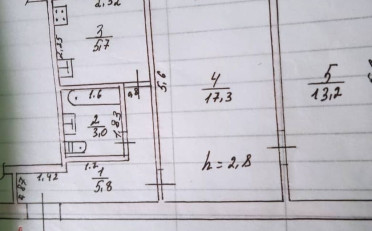 2.32
3
5,7
2.25
1.6
0,8
5,6
4
17,3
5
13,2
2
3,0
1.83
1.2
1
5,8
1,42
h = 2,8